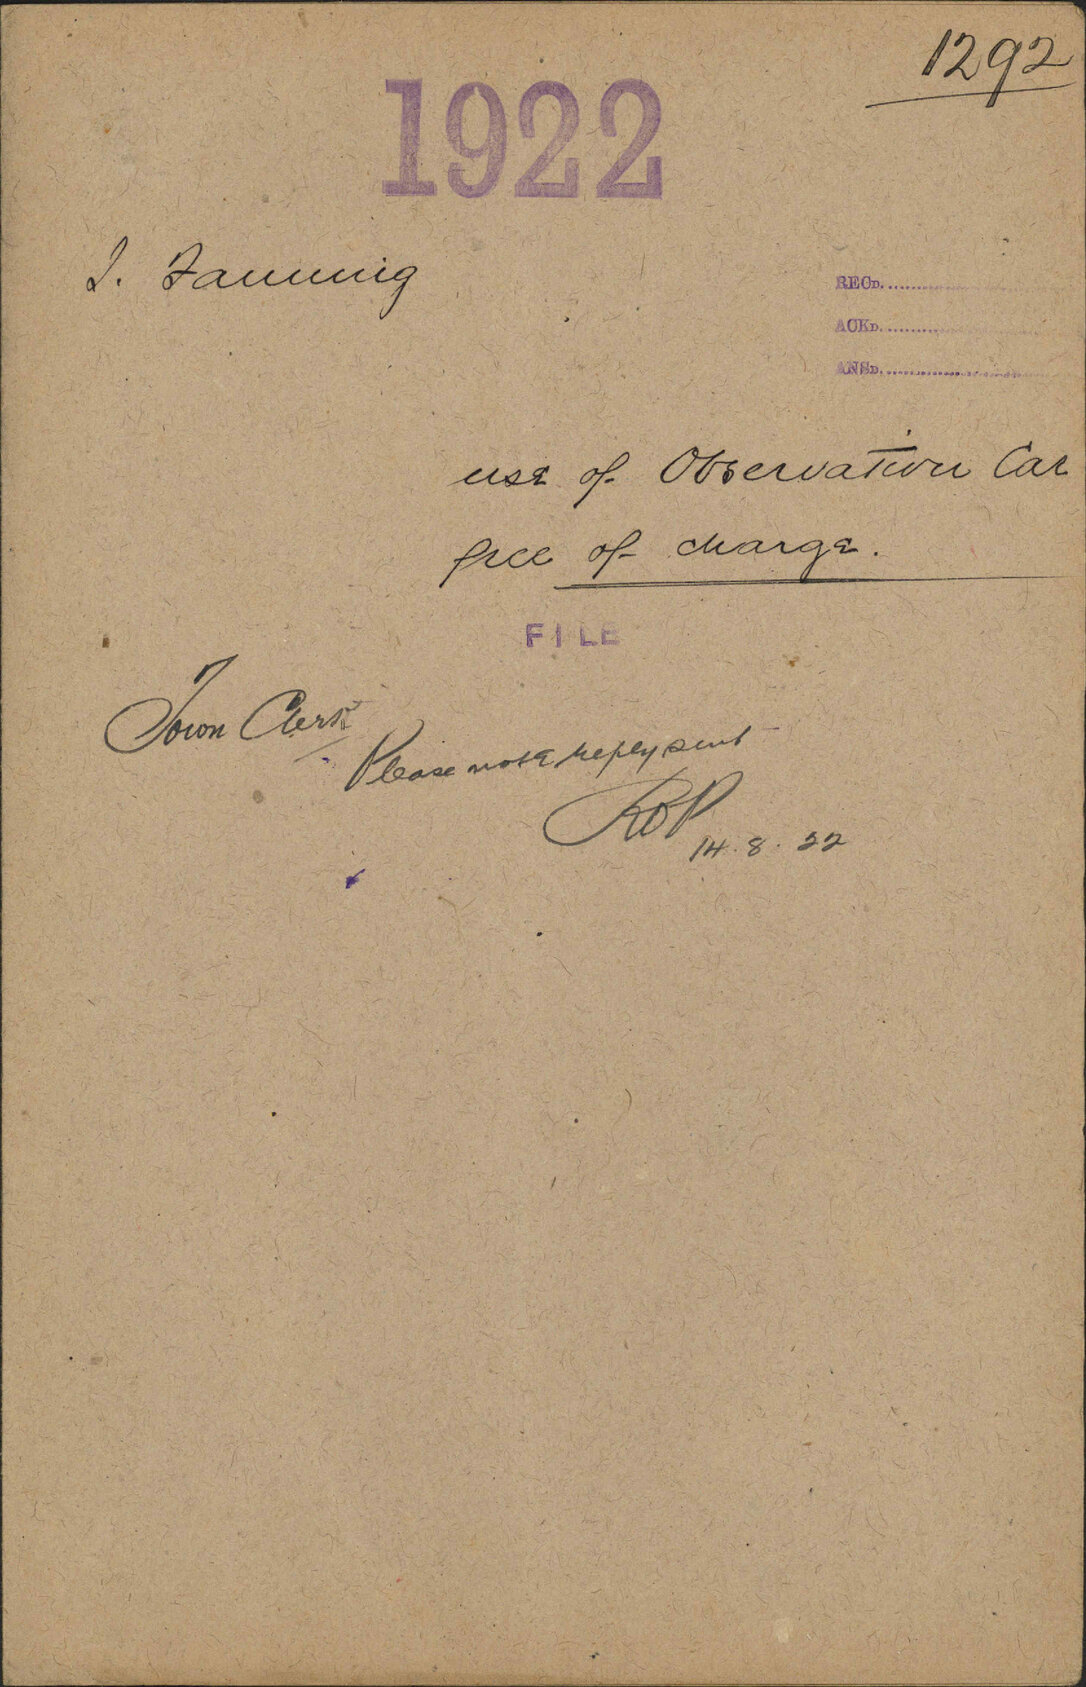 1292
1922
J. Fanning
RECD.
ACKD.
ANSD.
use of Observation Car
free of charge.
FILE
Town Clerk
Please note reply sent
14.8.22